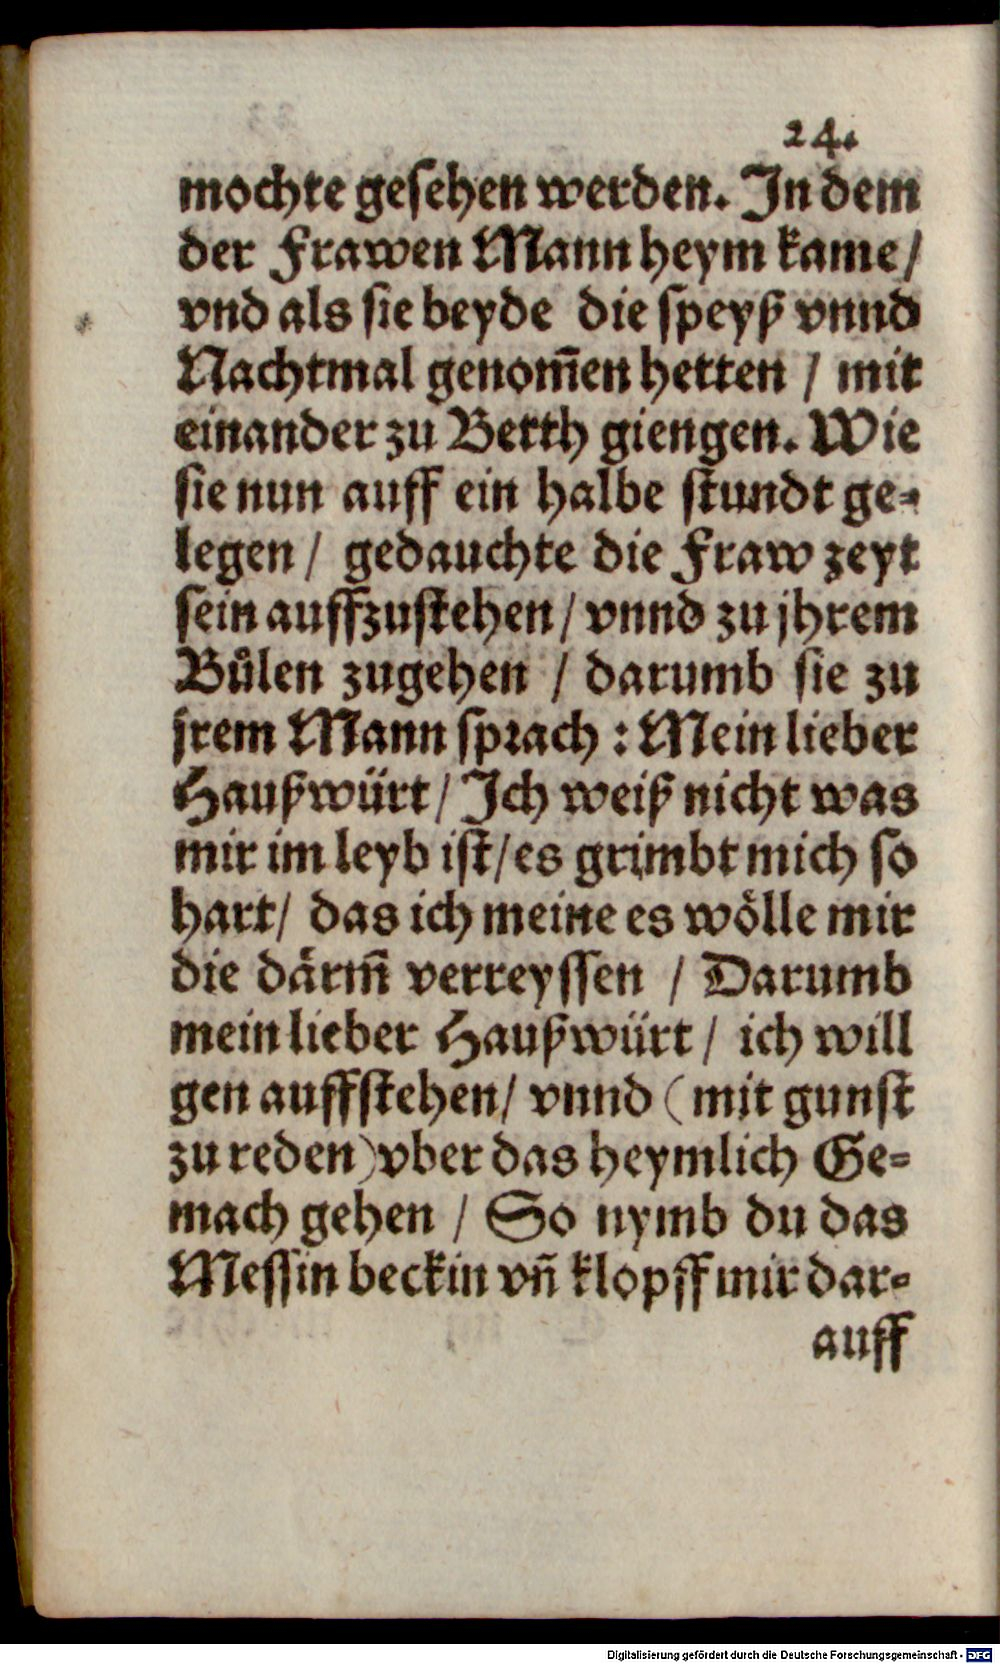 24.
mochte gesehen werden. In dem
der Frawen Mann heym kame /
vnd als sie beyde die speyß vnnd
Nachtmal genom̃en hetten / mit
einander zu Betth giengen. Wie
sie nun auff ein halbe stundt ge-
legen / gedauchte die Fraw zeyt
sein auffzustehen / vnnd zu jhrem
Bůlen zugehen / darumb sie zu
jrem Mann sprach : Mein lieber
Haußwürt / Ich weiß nicht was
mir im leyb ist / es grimbt mich so
hart / das ich meine es wölle mir
die därm̃ verreyssen / Darumb
mein lieber Haußwürt / ich will
gen auffstehen / vnnd (mit gunst
zu reden) vber das heymlich Ge-
mach gehen / So nymb du das
Messin beckin vñ klopff mir dar-
auff
Digitalisierung gefördert durch die Deutsche Forschungsgemeinschaft - DFG